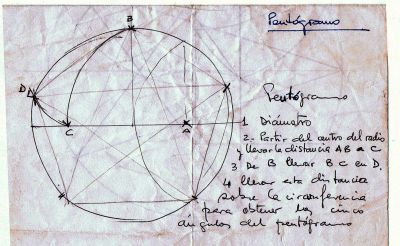 Pentágramo
B
D
C
A
Pentágramo
1 Diámetro
2- Partir del centro del radio
y llevar la distancia AB a C
3 De B llevar BC en D.
4 llevar esta distancia
sobre la circunferencia
para obtener los cinco
ángulos del pentágramo